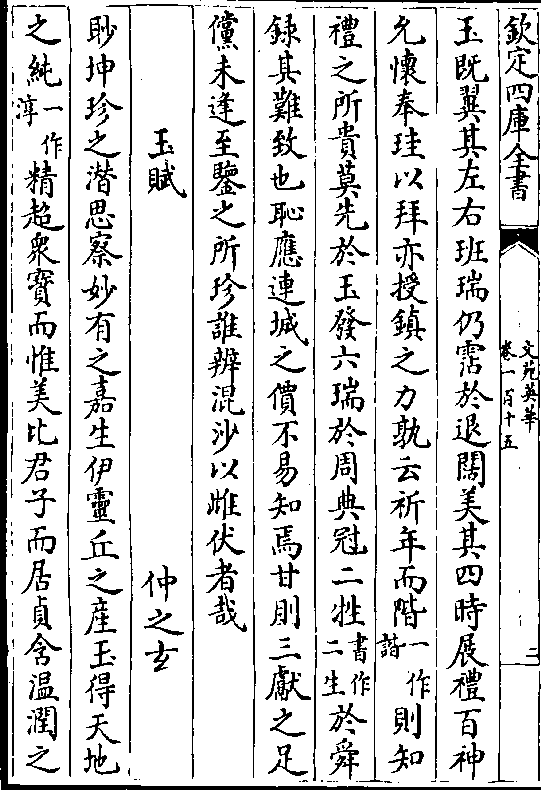 欽定四庫全書
文苑英華
卷一百十五
二
玉既翼其左右班瑞仍霑於退闊美其四時展禮百神
允懷奉珪以拜亦授鎮之力孰云祈年而階一作諧則知
禮之所貴莫先於玉發六瑞於周典冠二牲書作二生於舜
録其難致也恥應連城之價不易知焉甘刖三獻之足
儻未逢至鑒之所珍誰辨混沙以雌伏者哉
玉賦
仲之玄
眇坤珍之潜思察妙有之嘉生伊靈丘之産玉得天地
之純一作淳精超衆寳而惟美比君子而居貞含温潤之